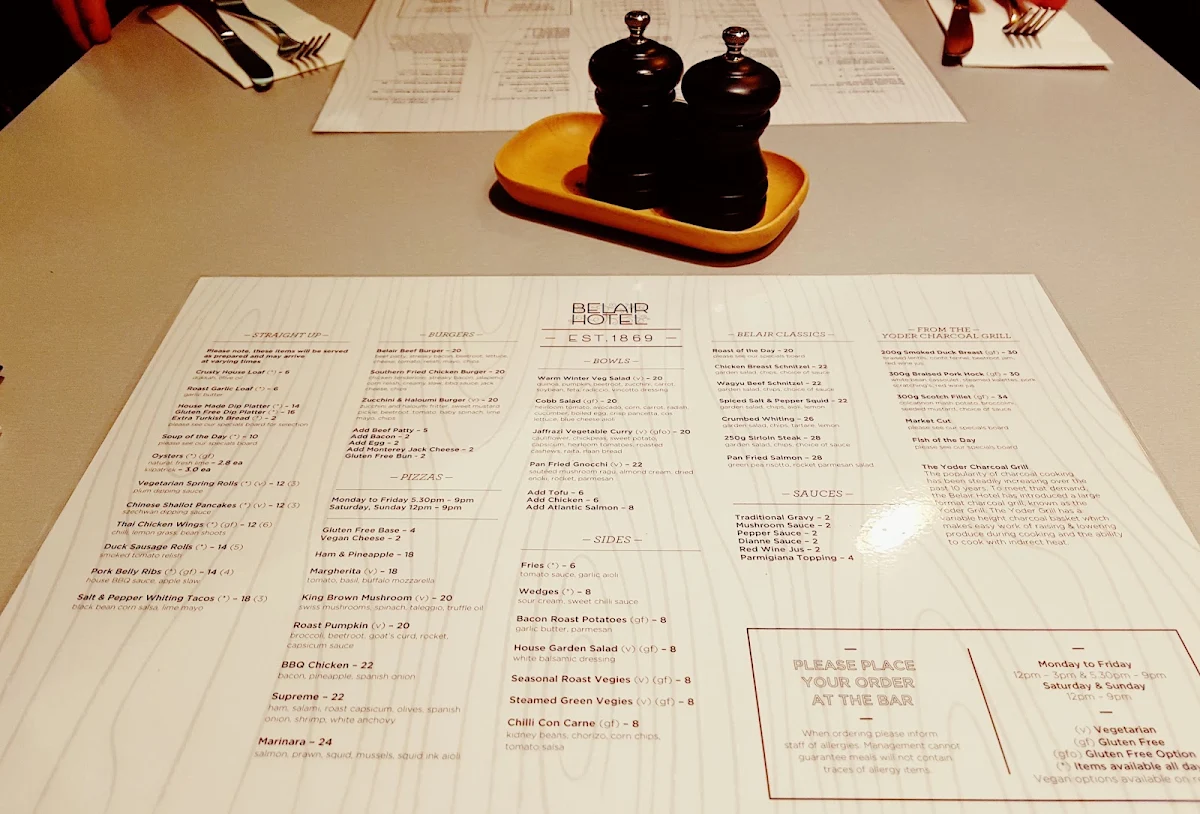 BELAIR
HOTEL
EST.1869
STRAIGHT UP
Please note, these items will be served
as prepared and may arrive
at varying times
Crusty House Loaf (*) - 6
Roast Garlic Loaf (*) - 6
garlic butter
House Made Dip Platter (*) - 14
Gluten Free Dip Platter (*) - 16
Extra Turkish Bread (*) - 2
please see our specials board for selection
Soup of the Day (*) - 10
please see our specials board
Oysters (*) (gf)
natural, fresh lime - 2.8 ea
kilpatrick - 3.0 ea
Vegetarian Spring Rolls (*) (v) - 12 (3)
plum dipping sauce
Chinese Shallot Pancakes (*) (v) - 12 (3)
szechwan dipping sauce
Thai Chicken Wings (*) (gf) - 12 (6)
chili, lemon grass, bean shoots
Duck Sausage Rolls (*) - 14 (5)
smoked tomato relish
Pork Belly Ribs (*) (gf) - 14 (4)
house BBQ sauce, apple slaw
Salt & Pepper Whiting Tacos (*) - 18 (3)
black bean corn salsa, lime mayo
BURGERS
Belair Beef Burger - 20
beef patty, streaky bacon, beetroot, lettuce,
cheese, tomato relish, mayo, chips
Southern Fried Chicken Burger - 20
Zucchini & Haloumi Burger (v) - 20
Add Beef Patty - 5
Add Bacon - 2
Add Egg - 2
Add Monterey Jack Cheese - 2
Gluten Free Bun - 2
PIZZAS
Monday to Friday 5.30pm - 9pm
Saturday, Sunday 12pm - 9pm
Gluten Free Base - 4
Vegan Cheese - 2
Ham & Pineapple - 18
Margherita (v) - 18
tomato, basil, buffalo mozzarella
King Brown Mushroom (v) - 20
swiss mushrooms, spinach, taleggio, truffle oil
Roast Pumpkin (v) - 20
broccoli, beetroot, goat's curd, rocket,
capsicum sauce
BBQ Chicken - 22
bacon, pineapple, spanish onion
Supreme - 22
ham, salami, roast capsicum, olives, spanish
onion, shrimp, white anchovy
Marinara - 24
salmon, prawn, squid, mussels, squid ink aioli
BOWLS
Warm Winter Veg Salad (v) - 20
quinoa, pumpkin, beetroot, zucchini, carrot,
Cobb Salad (gf) - 20
heirloom tomato, avocado, corn, carrot, radish,
Jaffrazi Vegetable Curry (v) (gfo) - 20
cauliflower, chickpea, sweet potato,
capsicum, heirloom tomatoes, roasted
cashews, raita, naan bread
Pan Fried Gnocchi (v) - 22
seasoned mushroom ragu, almond cream, dried
enoki, rocket, parmesan
Add Tofu - 6
Add Chicken - 6
Add Atlantic Salmon - 8
SIDES
Fries (*) - 6
tomato sauce, garlic aioli
Wedges (*) - 8
sour cream, sweet chili sauce
Bacon Roast Potatoes (gf) - 8
garlic butter, parmesan
House Garden Salad (v) (gf) - 8
white balsamic dressing
Seasonal Roast Vegies (v) (gf) - 8
Steamed Green Vegies (v) (gf) - 8
Chilli Con Carne (gf) - 8
kidney beans, chorizo, corn chips,
tomato salsa
BELAIR CLASSICS
Roast of the Day - 20
please see our specials board
Chicken Breast Schnitzel - 22
garden salad, chips, choice of sauce
Wagyu Beef Schnitzel - 22
garden salad, chips, choice of sauce
Spiced Salt & Pepper Squid - 22
garden salad, chips, aioli, lemon
Crumbed Whiting - 26
garden salad, chips, tartare, lemon
250g Sirloin Steak - 28
garden salad, chips, choice of sauce
Pan Fried Salmon - 28
green pea risotto, rocket parmesan salad
SAUCES
Traditional Gravy - 2
Mushroom Sauce - 2
Pepper Sauce - 2
Dianne Sauce - 2
Red Wine Jus - 2
Parmigiana Topping - 4
FROM THE
YODER CHARCOAL GRILL
200g Smoked Duck Breast (gf) - 30
300g Braised Pork Hock (gf) - 30
300g Scotch Fillet (gf) - 34
Market Cut
please see our specials board
Fish of the Day
please see our specials board
The Yoder Charcoal Grill
The popularity of charcoal cooking
has been steadily increasing over the
past 10 years. To meet that demand,
the Belair Hotel has introduced a large
format charcoal grill, known as the
Yoder Grill. The Yoder Grill has a
variable height charcoal basket which
makes easy work of raising & lowering
produce during cooking and the ability
to cook with indirect heat.
PLEASE PLACE
YOUR ORDER
AT THE BAR
When ordering please inform
staff of allergies. Management cannot
guarantee meals will not contain
traces of allergy items.
Monday to Friday
12pm - 3pm & 5.30pm - 9pm
Saturday & Sunday
12pm - 9pm
(v) Vegetarian
(gf) Gluten Free
(gfo) Gluten Free Option
(*) Items available all day
Vegan options available on